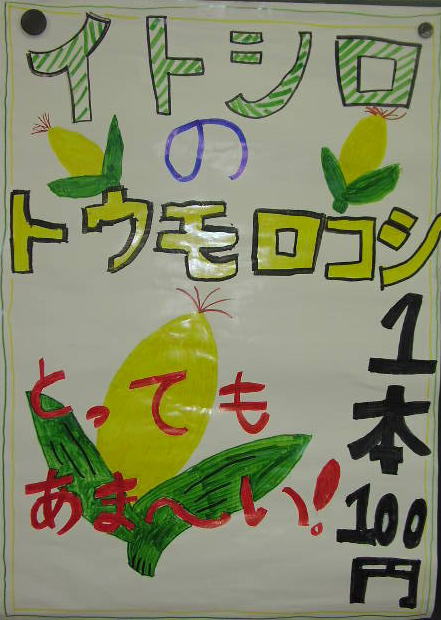 イトシロ
の
トウモロコシ
とっても
あま〜い!
1本100円